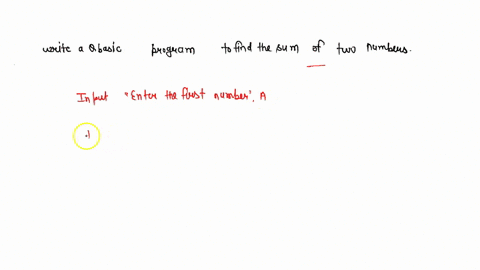 write a Qbasic program to find the sum of two numbers.
Input "Enter the first number", A